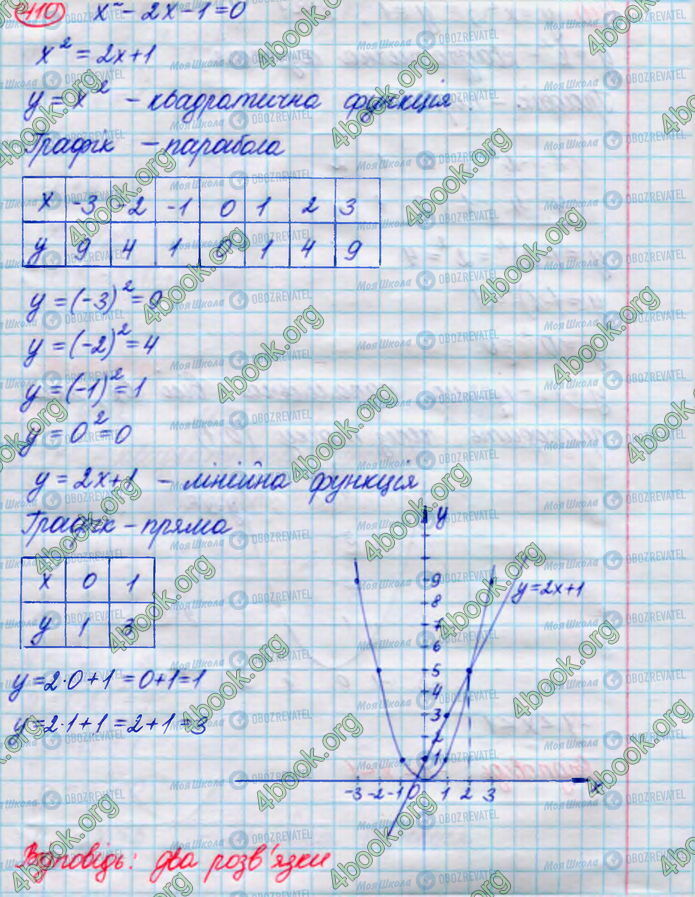 410 x² - 2x - 1 = 0
x² = 2x + 1
y = x² - квадратична функція
Графік - парабола
x -3 -2 -1 0 1 2 3
y 9 4 1 0 1 4 9
y = (-3)² = 9
y = (-2)² = 4
y = (-1)² = 1
y = 0² = 0
y = 2x + 1 - лінійна функція
Графік - пряма
x 0 1
y 1 3
y = 2·0 + 1 = 0 + 1 = 1
y = 2·1 + 1 = 2 + 1 = 3
y
9
8
7
6
5
4
3
2
1
y = 2x + 1
-3 -2 -1 0 1 2 3 x
Відповідь: два розв'язки
4book.org
Моя Школа
OBOZREVATEL